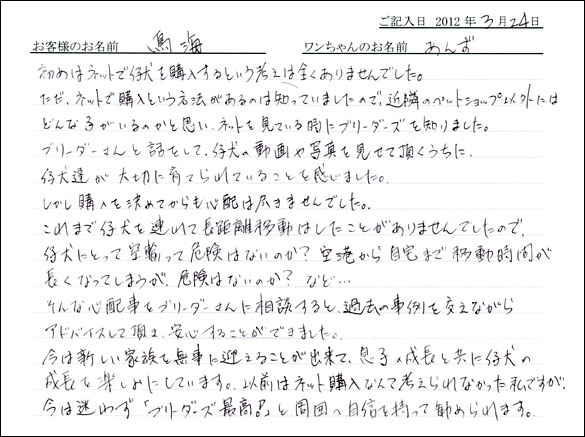 ご記入日 2012年3月24日
お客様のお名前 鳥海 ワンちゃんのお名前 あんず
初めはネットで仔犬を購入するという考えは全くありませんでした。
ただ、ネットで購入という方法があるのは知っていましたので、近隣のペットショップ以外には
どんな子がいるのかと思い、ネットを見ている時にブリーダーズを知りました。
ブリーダーさんと話をして、仔犬の動画や写真を見せて頂くうちに、
仔犬達が大切に育てられていることを感じました。
しかし購入を決めてからも心配は尽きませんでした。
これまで仔犬を連れて長距離移動はしたことがありませんでしたので、
仔犬にとって空輸って危険はないのか？空港から自宅まで移動時間が
長くなってしまうが、危険はないのか？など…
そんな心配事をブリーダーさんに相談すると、過去の事例を交えながら
アドバイスして頂き、安心することができました。
今は新しい家族を無事に迎えることが出来て、息子の成長と共に仔犬の
成長を楽しみにしています。以前はネット購入なんて考えられなかった私ですが、
今は迷わず「ブリーダーズ最高！」と周囲へ自信を持って勧められます。